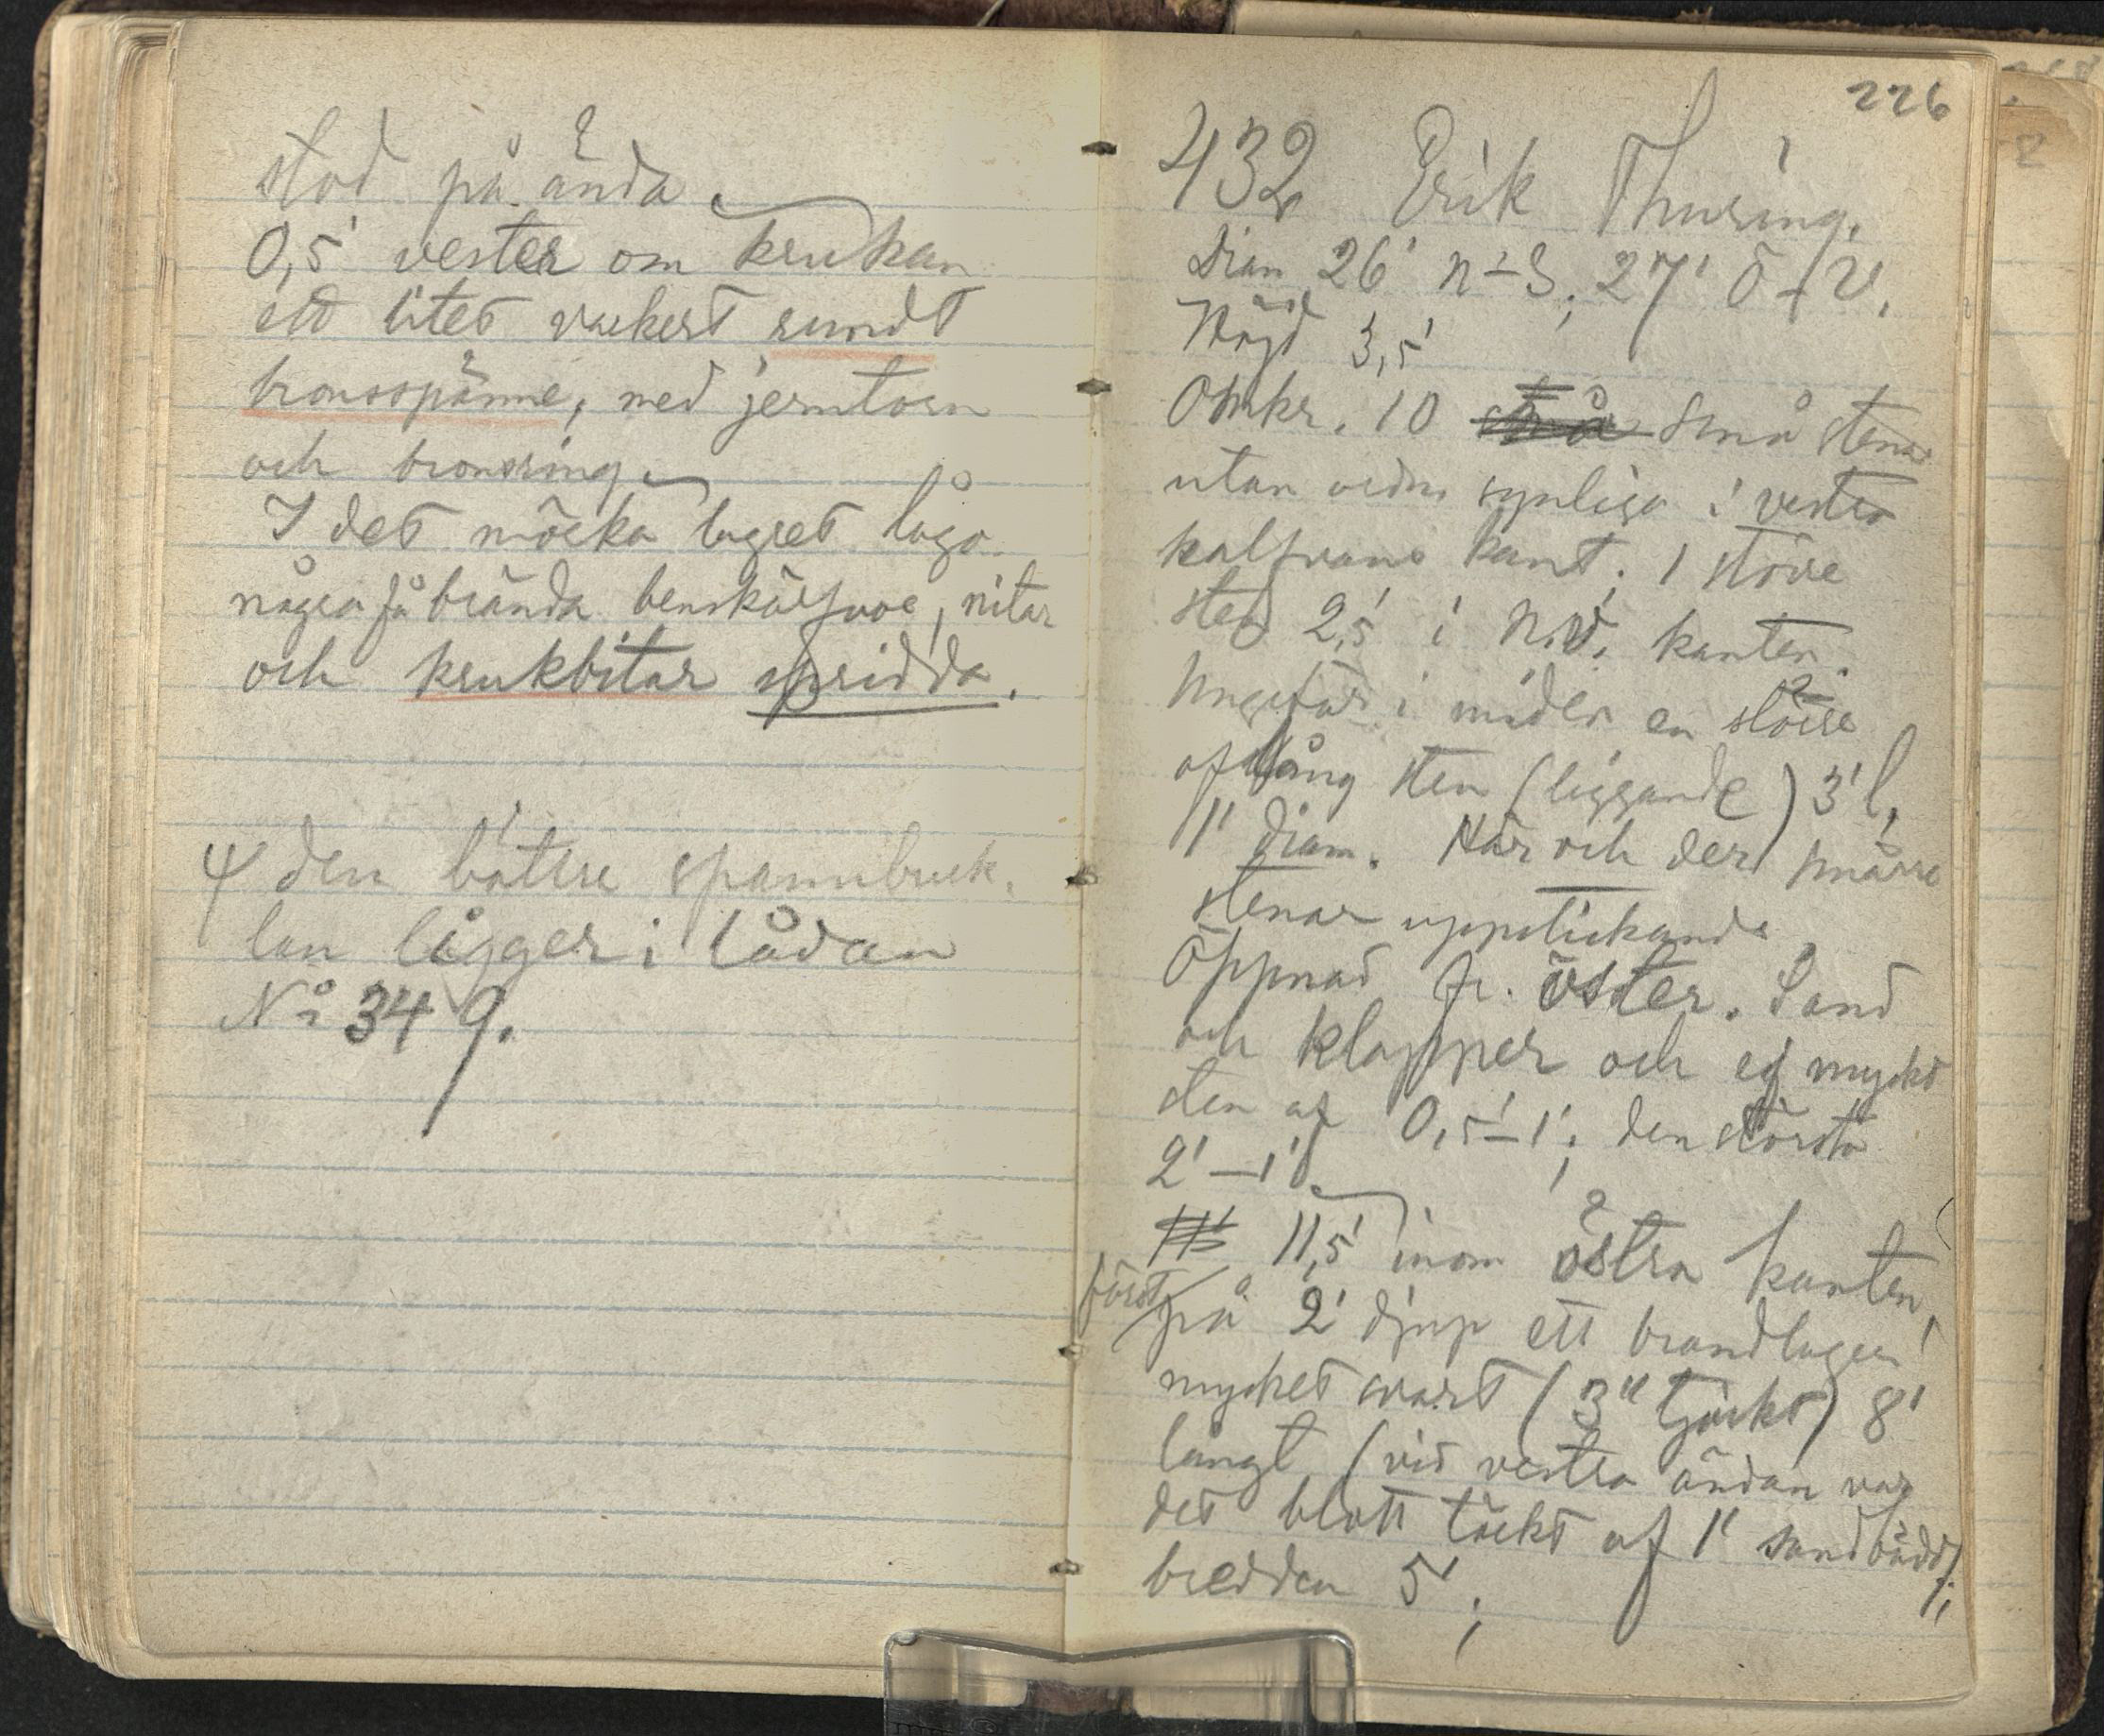 stod på ända
0,5' vester om krukan
ett litet vackert rundt
bronsspänne, med jerntorn
och bronsring
I det mörka lagret lågo
några få brända benskärfvor, nitar
och krukbitar spridda.
den bättre spannbuck.
lan ligger i lådan
No 349.
226
432 Erik Thuring.
Diam 26' N–S; 27' Ö–V.
Höjd 3,5'
Omkr. 10 små stenar
utan ordn. synliga i vestra
halfvans kant; 1 större
sten 2,5' i N.V. kanten.
Ungefär i midten en större
aflång sten (liggande) 3' l.
1' diam. Här och der smärre
stenar uppstickande
Öppnad fr. öster. Sand
och klapper och ej mycket
sten af 0,5'–1'; den största
2'–1'
11,5' inom östra kanten,
först på 2' djup ett brandlager
mycket svart (3" tjockt) 8'
långt (vid vestra ändan var
det blott täckt af 1' sandbädd);
bredden 5';